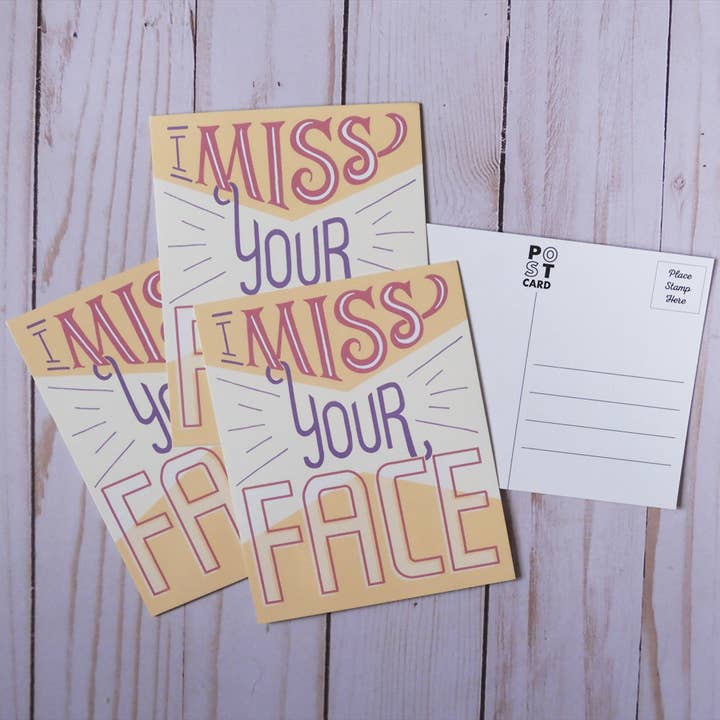 I MISS
YOUR
I MIS
YO
FA
I MISS
YOUR
FACE
PO
ST
CARD
Place
Stamp
Here